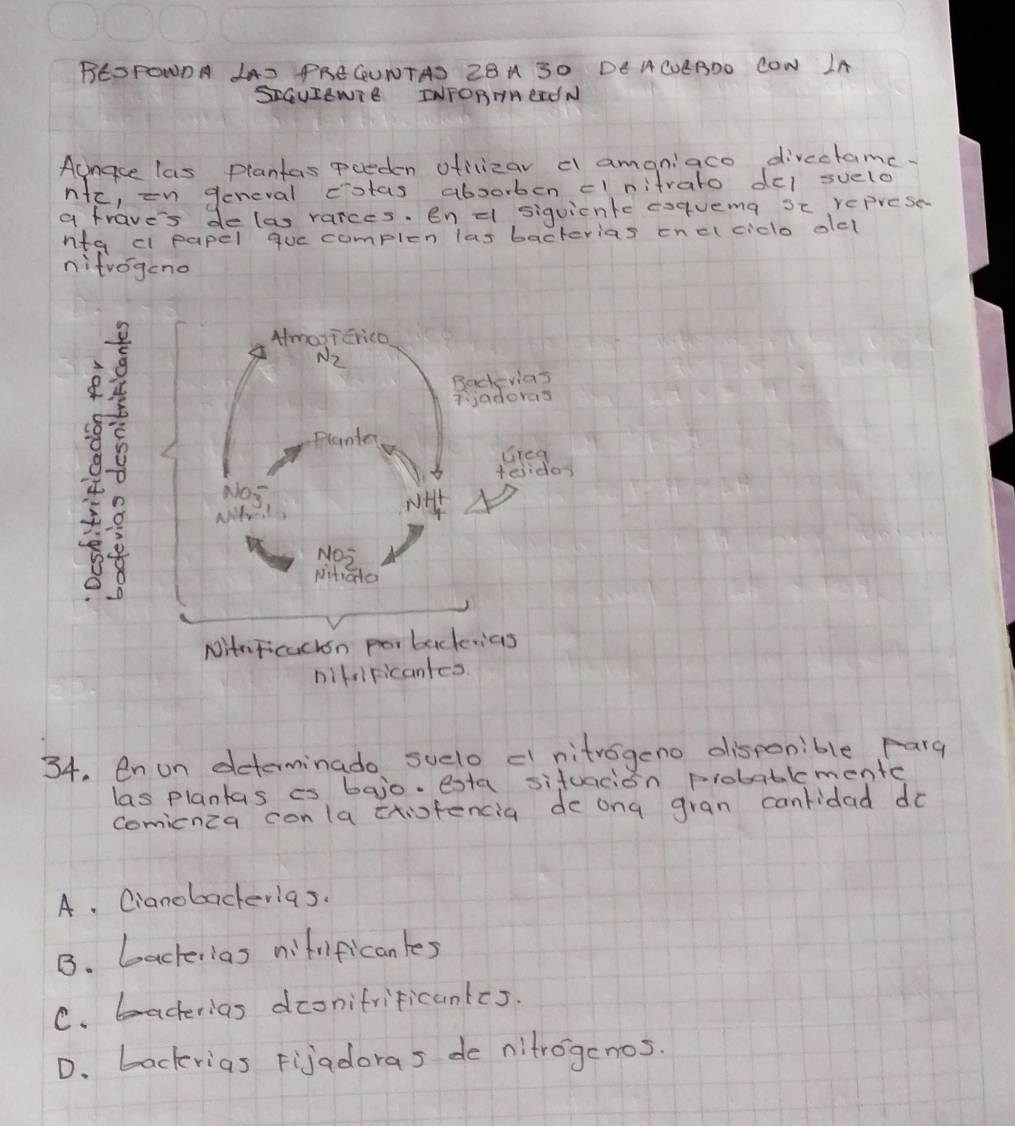 RESPONDA LAS PREGUNTAS 28 A 30 DE ACUERDO CON LA
SIGUIENTE INFORMACION
Aunque las plantas pueden utilizar el amoniaco directame-
nte, en general estas absorben el nitrato del suelo
a través de las raices. en el siguiente esquema se represe
nta el papel que complen las bacterias en el ciclo del
nitrógeno
Desnitrificación por
bacterias desnitrificantes
Atmosférico
N2
Bacterias
Fijadoras
Planta
Urea
tejidos
NO3-
Nitrato
NH4+
NO2-
Nitrato
Nitrificación por bacterias
nitrificantes.
34. en un determinado suelo el nitrógeno disponible para
las plantas es bajo. esta situación probablemente
comienza con la existencia de una gran cantidad de
A. Cianobacterias.
B. bacterias nitrificantes
C. bacterias desnitrificantes.
D. bacterias Fijadoras de nitrógenos.